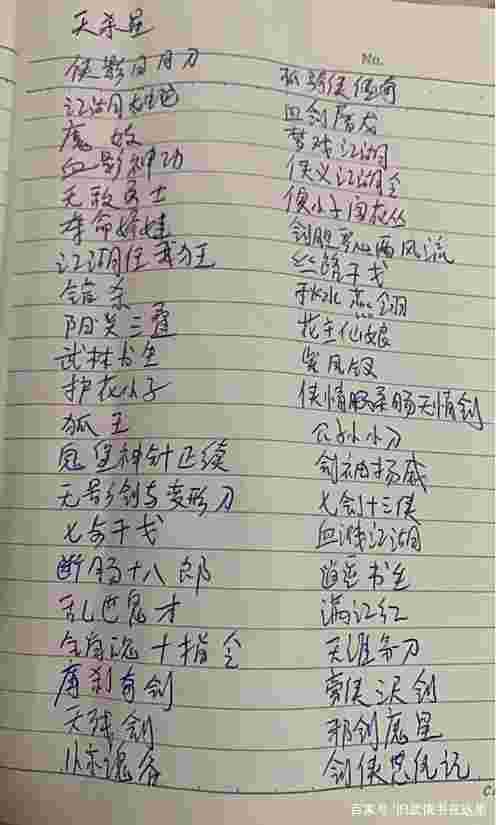 天杀星
侠影日月刀
江湖
魔妓
血影神功
无敌勇士
夺命娇娃
江湖任我狂
错杀
阳关三叠
武林书生
护花小子
狐王
鬼星神针正续
无影剑与变形刀
七步干戈
断肠十八郎
乱世鬼才
金角魂十指令
魔刹奇剑
天残剑
No.
孤骑侠传奇
血剑屠龙
梦残江湖
侠义江湖令
傻小子闯
剑胆琴心两风流
丝路干戈
秋水燕翎
花主仙娘
笑风
侠情柔肠无情剑
公孙小刀
剑神扬威
七剑十三侠
血溅江湖
逍遥书生
满江红
天涯奇刀
豪侠沉剑
邪剑魔星
剑侠恩仇记
百家号/旧武侠书在这里